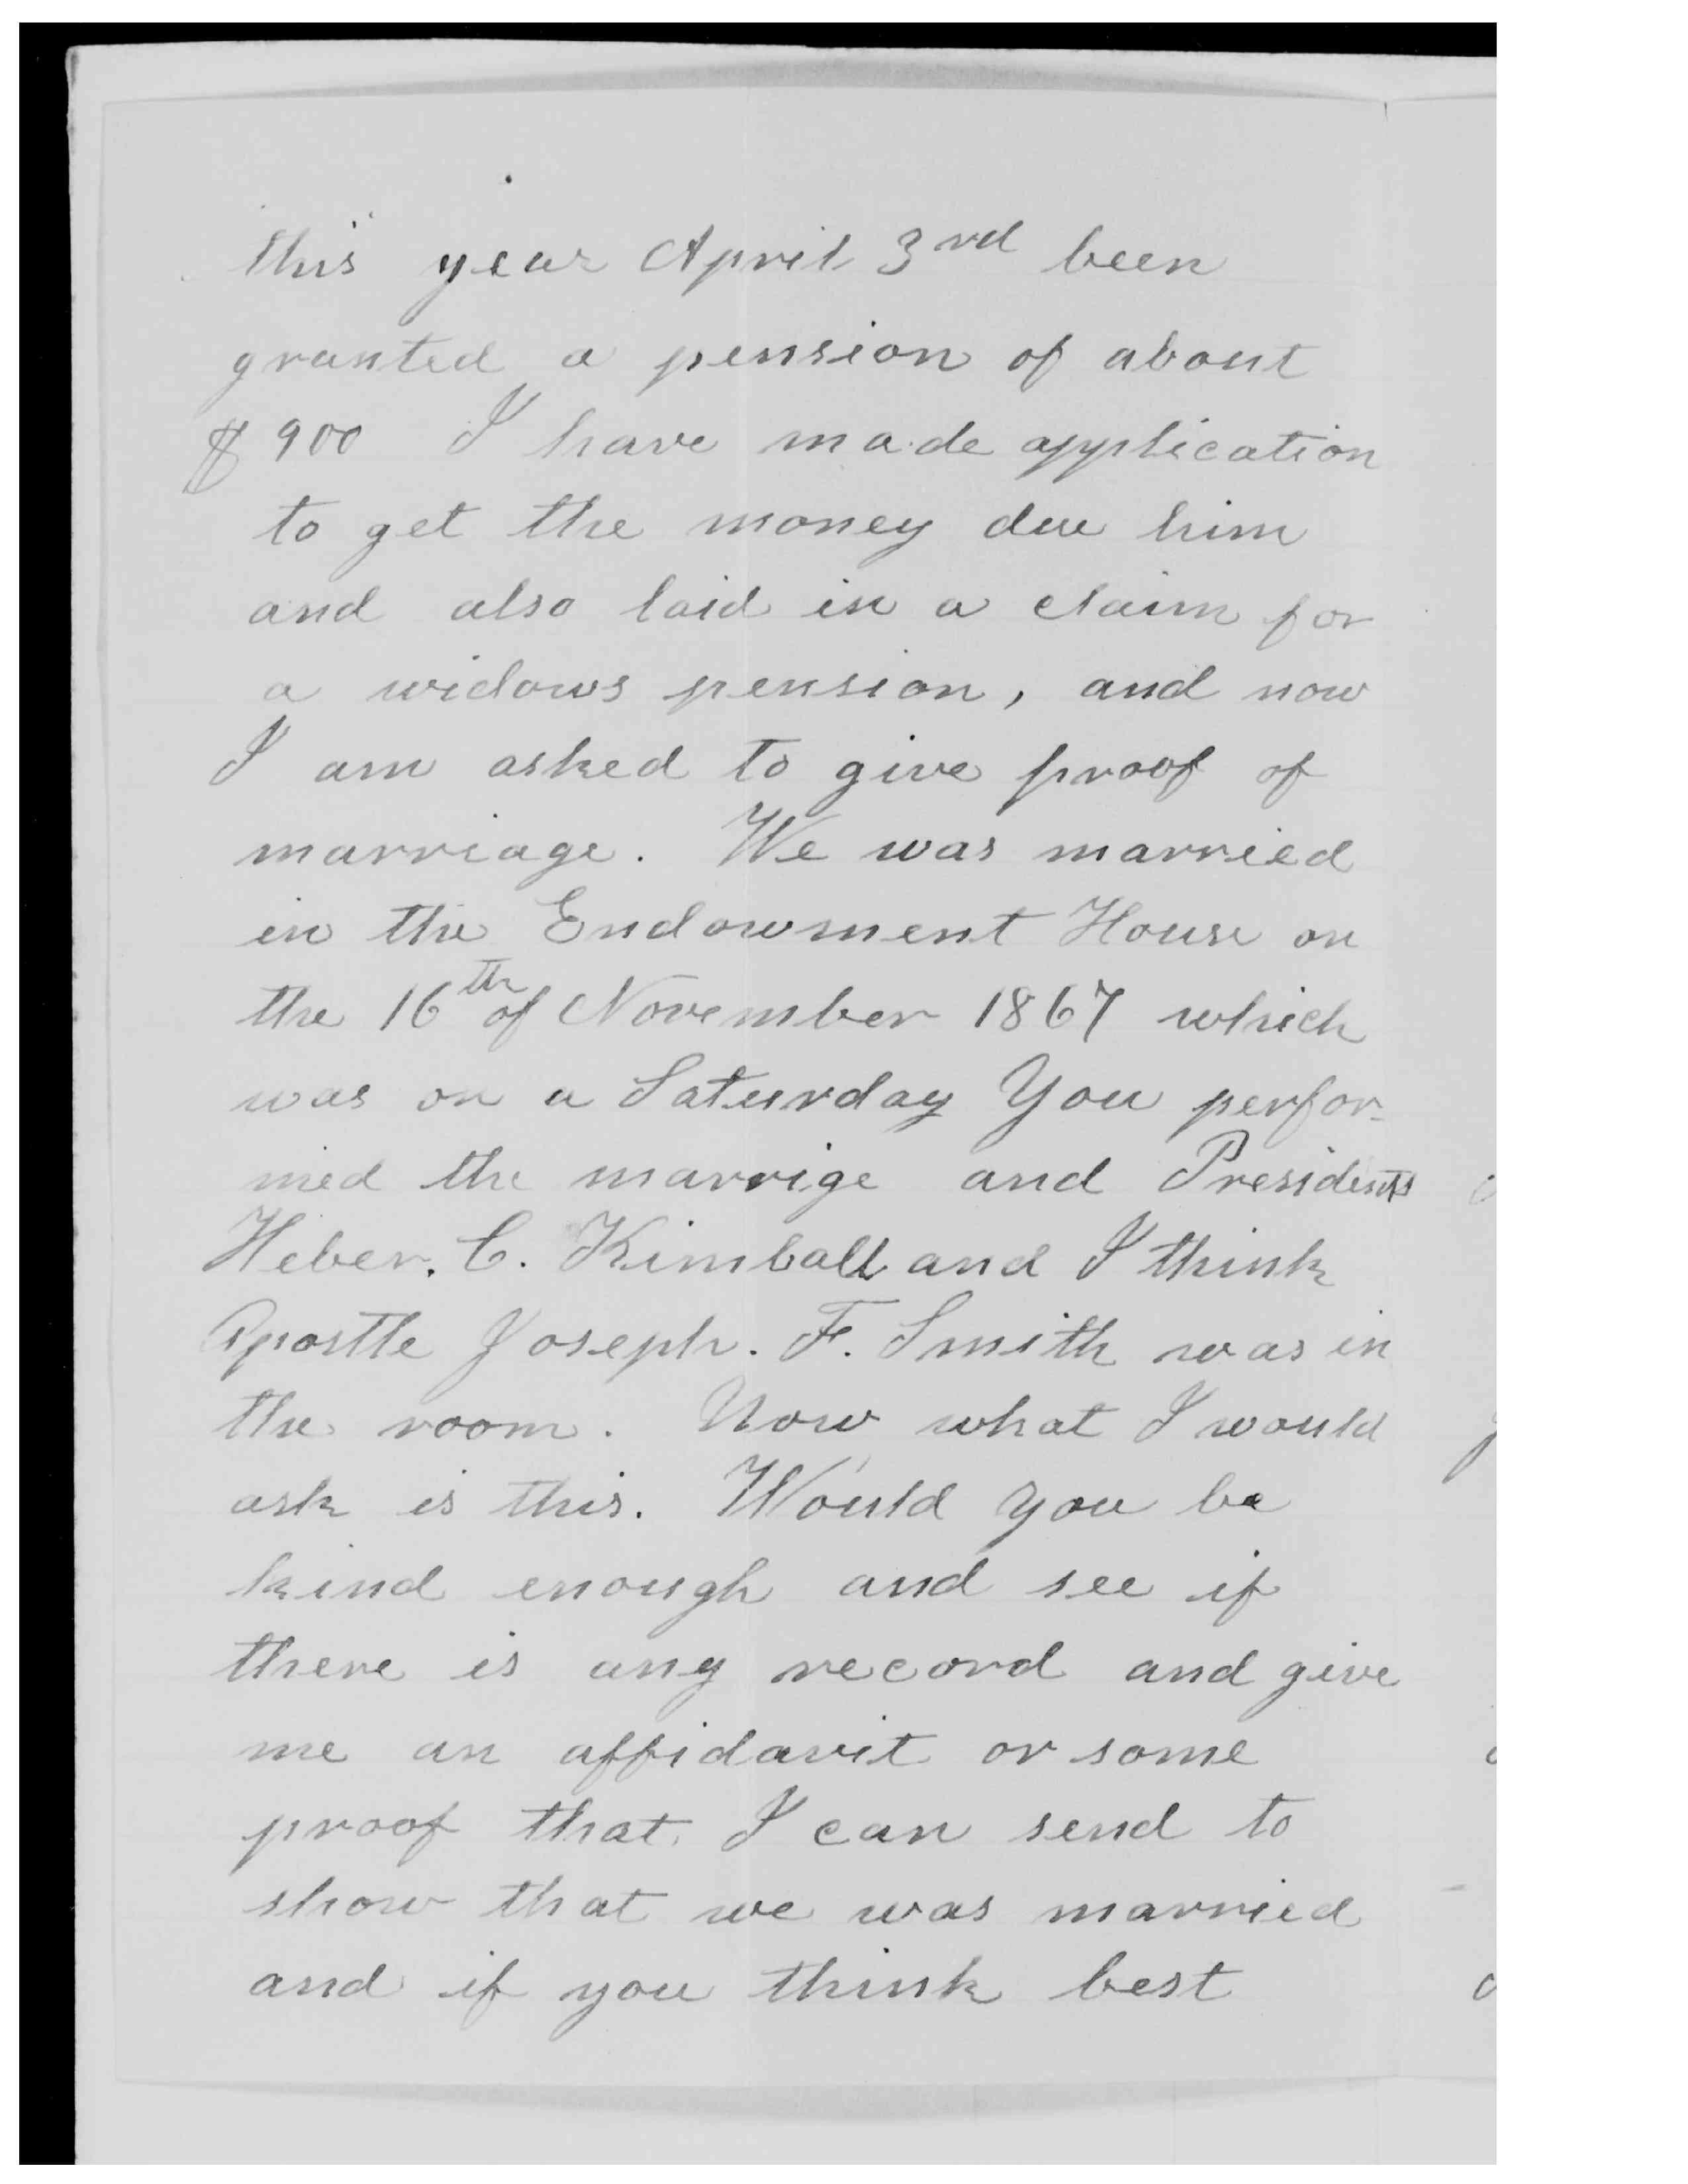 this year April 3rd been
granted a pension of about
$900 I have made application
to get the money due him
and also laid in a claim for
a widows pension, and now
I am asked to give proof of
marriage. We was married
in the Endowment House on
the 16th of November 1867 which
was on a Saturday You perfor-
med the marrige and Presidents
Heber. C. Kimball and I think
Apostle Joseph. F. Smith was in
the room. Now what I would
ask is this. Would you be
kind enough and see if
there is any record and give
me an affidavit or some
proof that I can send to
show that we was married
and if you think best